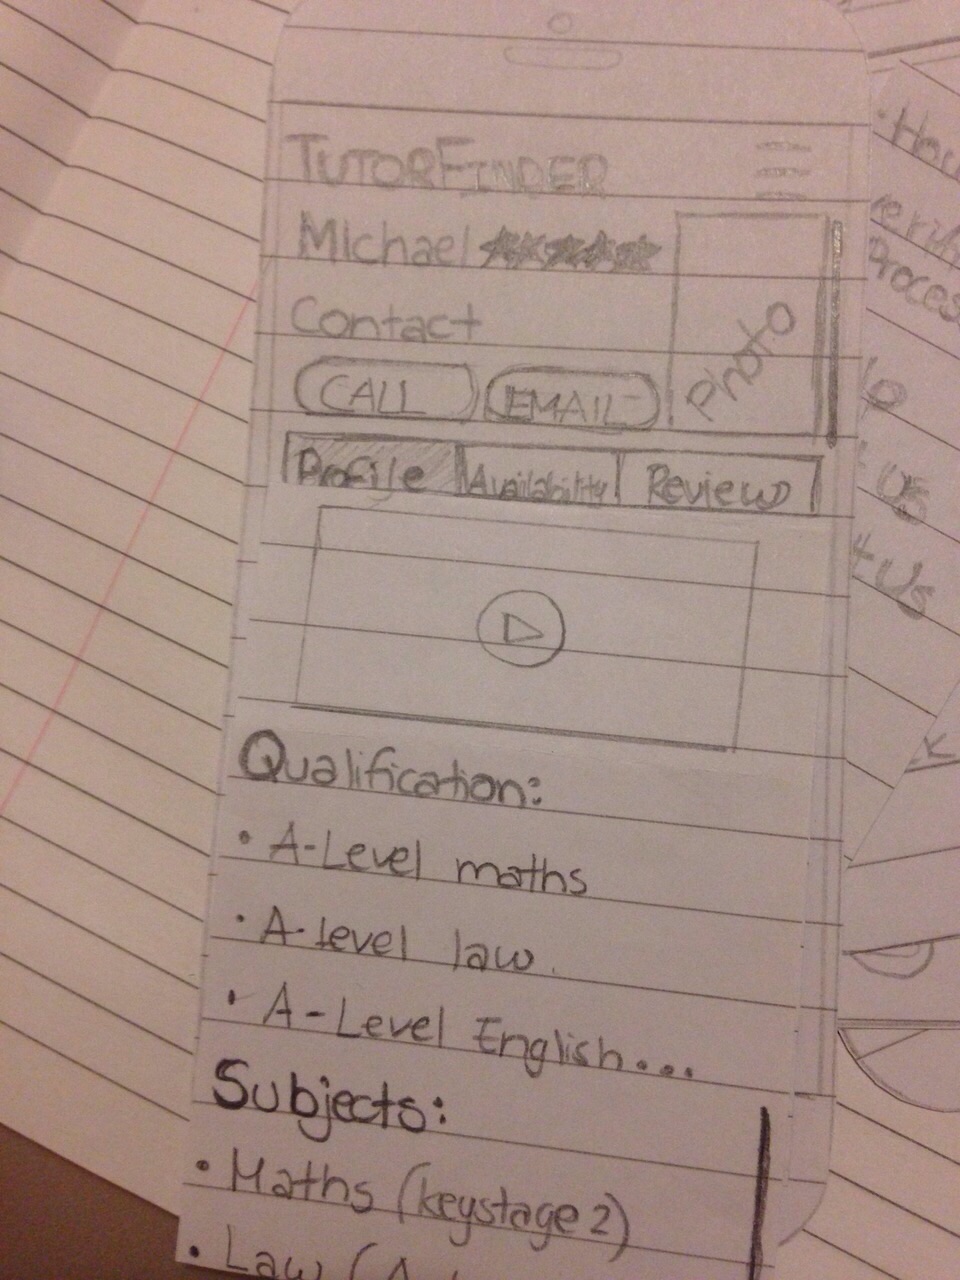 TUTORFINDER
Michael
Contact
CALL EMAIL
Photo
Profile Availability Reviews
Qualification:
• A-Level maths
• A-level law.
• A-Level English...
Subjects:
• Maths (keystage 2)
• Law (A
Us
Us